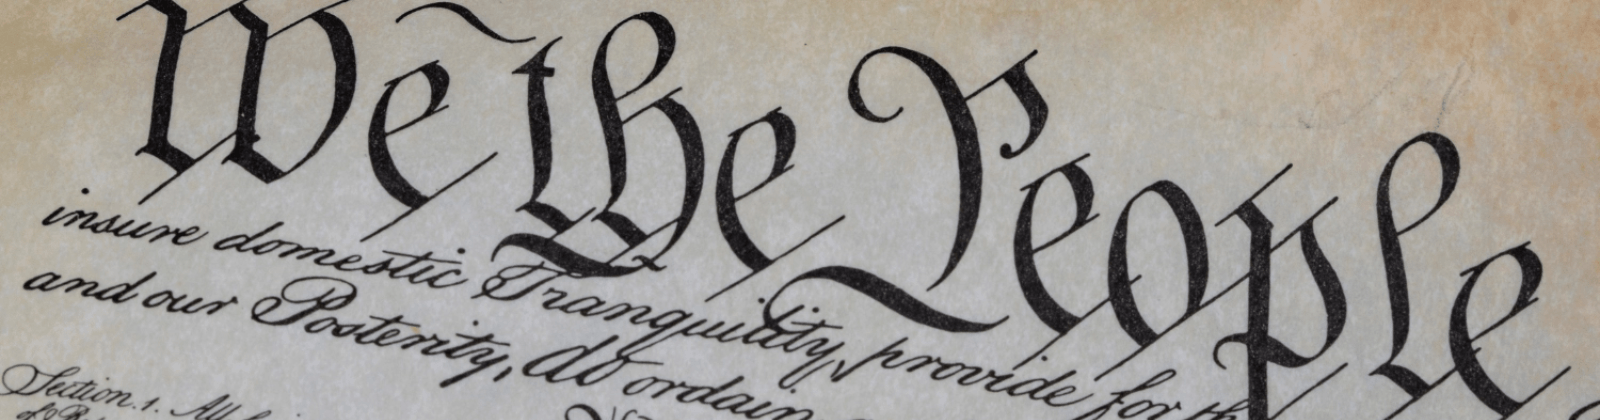 We the People
insure domestic Tranquility, provide for th
and our Posterity, do ordain
Section. 1. All